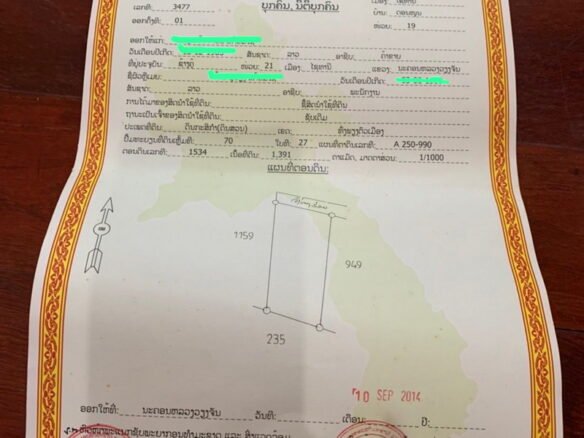 ບຸກຄົນ, ນິຕິບຸກຄົນ
ເລກທີ: 3477
ບ້ານ: ດອນໜູນ
ອອກຄັ້ງທີ: 01
ໜ່ວຍ: 19
ອອກໃຫ້ແກ່:
ວັນເດືອນປີເກີດ: ສັນຊາດ: ລາວ ອາຊີບ: ຄ້າຂາຍ
ທີ່ຢູ່ປະຈຸບັນ: ໜ່ວຍ: 21 ເມືອງ: ໄຊທານີ ແຂວງ: ນະຄອນຫລວງວຽງຈັນ
ຊື່ຜົວຫຼືເມຍ: ວັນເດືອນປີເກີດ:
ສັນຊາດ: ລາວ ອາຊີບ: ພະນັກງານ
ການໄດ້ມາຂອງສິດນຳໃຊ້ທີ່ດິນ: ຊື້ສິດນຳໃຊ້ທີ່ດິນ
ຖານະເປັນເຈົ້າຂອງສິດນຳໃຊ້ທີ່ດິນ: ຊັບເດີມ
ປະເພດທີ່ດິນ: ດິນກະສິກຳ(ດິນສວນ) ເຂດ: ທົ່ງພຽງຕົວເມືອງ
ປຶ້ມທະບຽນທີ່ດິນເຫຼັ້ມທີ: 70 ໃບທີ: 27 ແຜນທີ່ຕາດິນເລກທີ: A 250-990
ຕອນດິນເລກທີ: 1534 ເນື້ອທີ່ດິນ: 1,391 ຕາແມັດ, ມາດຕາສ່ວນ: 1/1000
ແຜນທີ່ຕອນດິນ:
1159
949
235
10 SEP 2014
ອອກໃຫ້ທີ່: ນະຄອນຫລວງວຽງຈັນ ວັນທີ: ເດືອນ: ປີ: